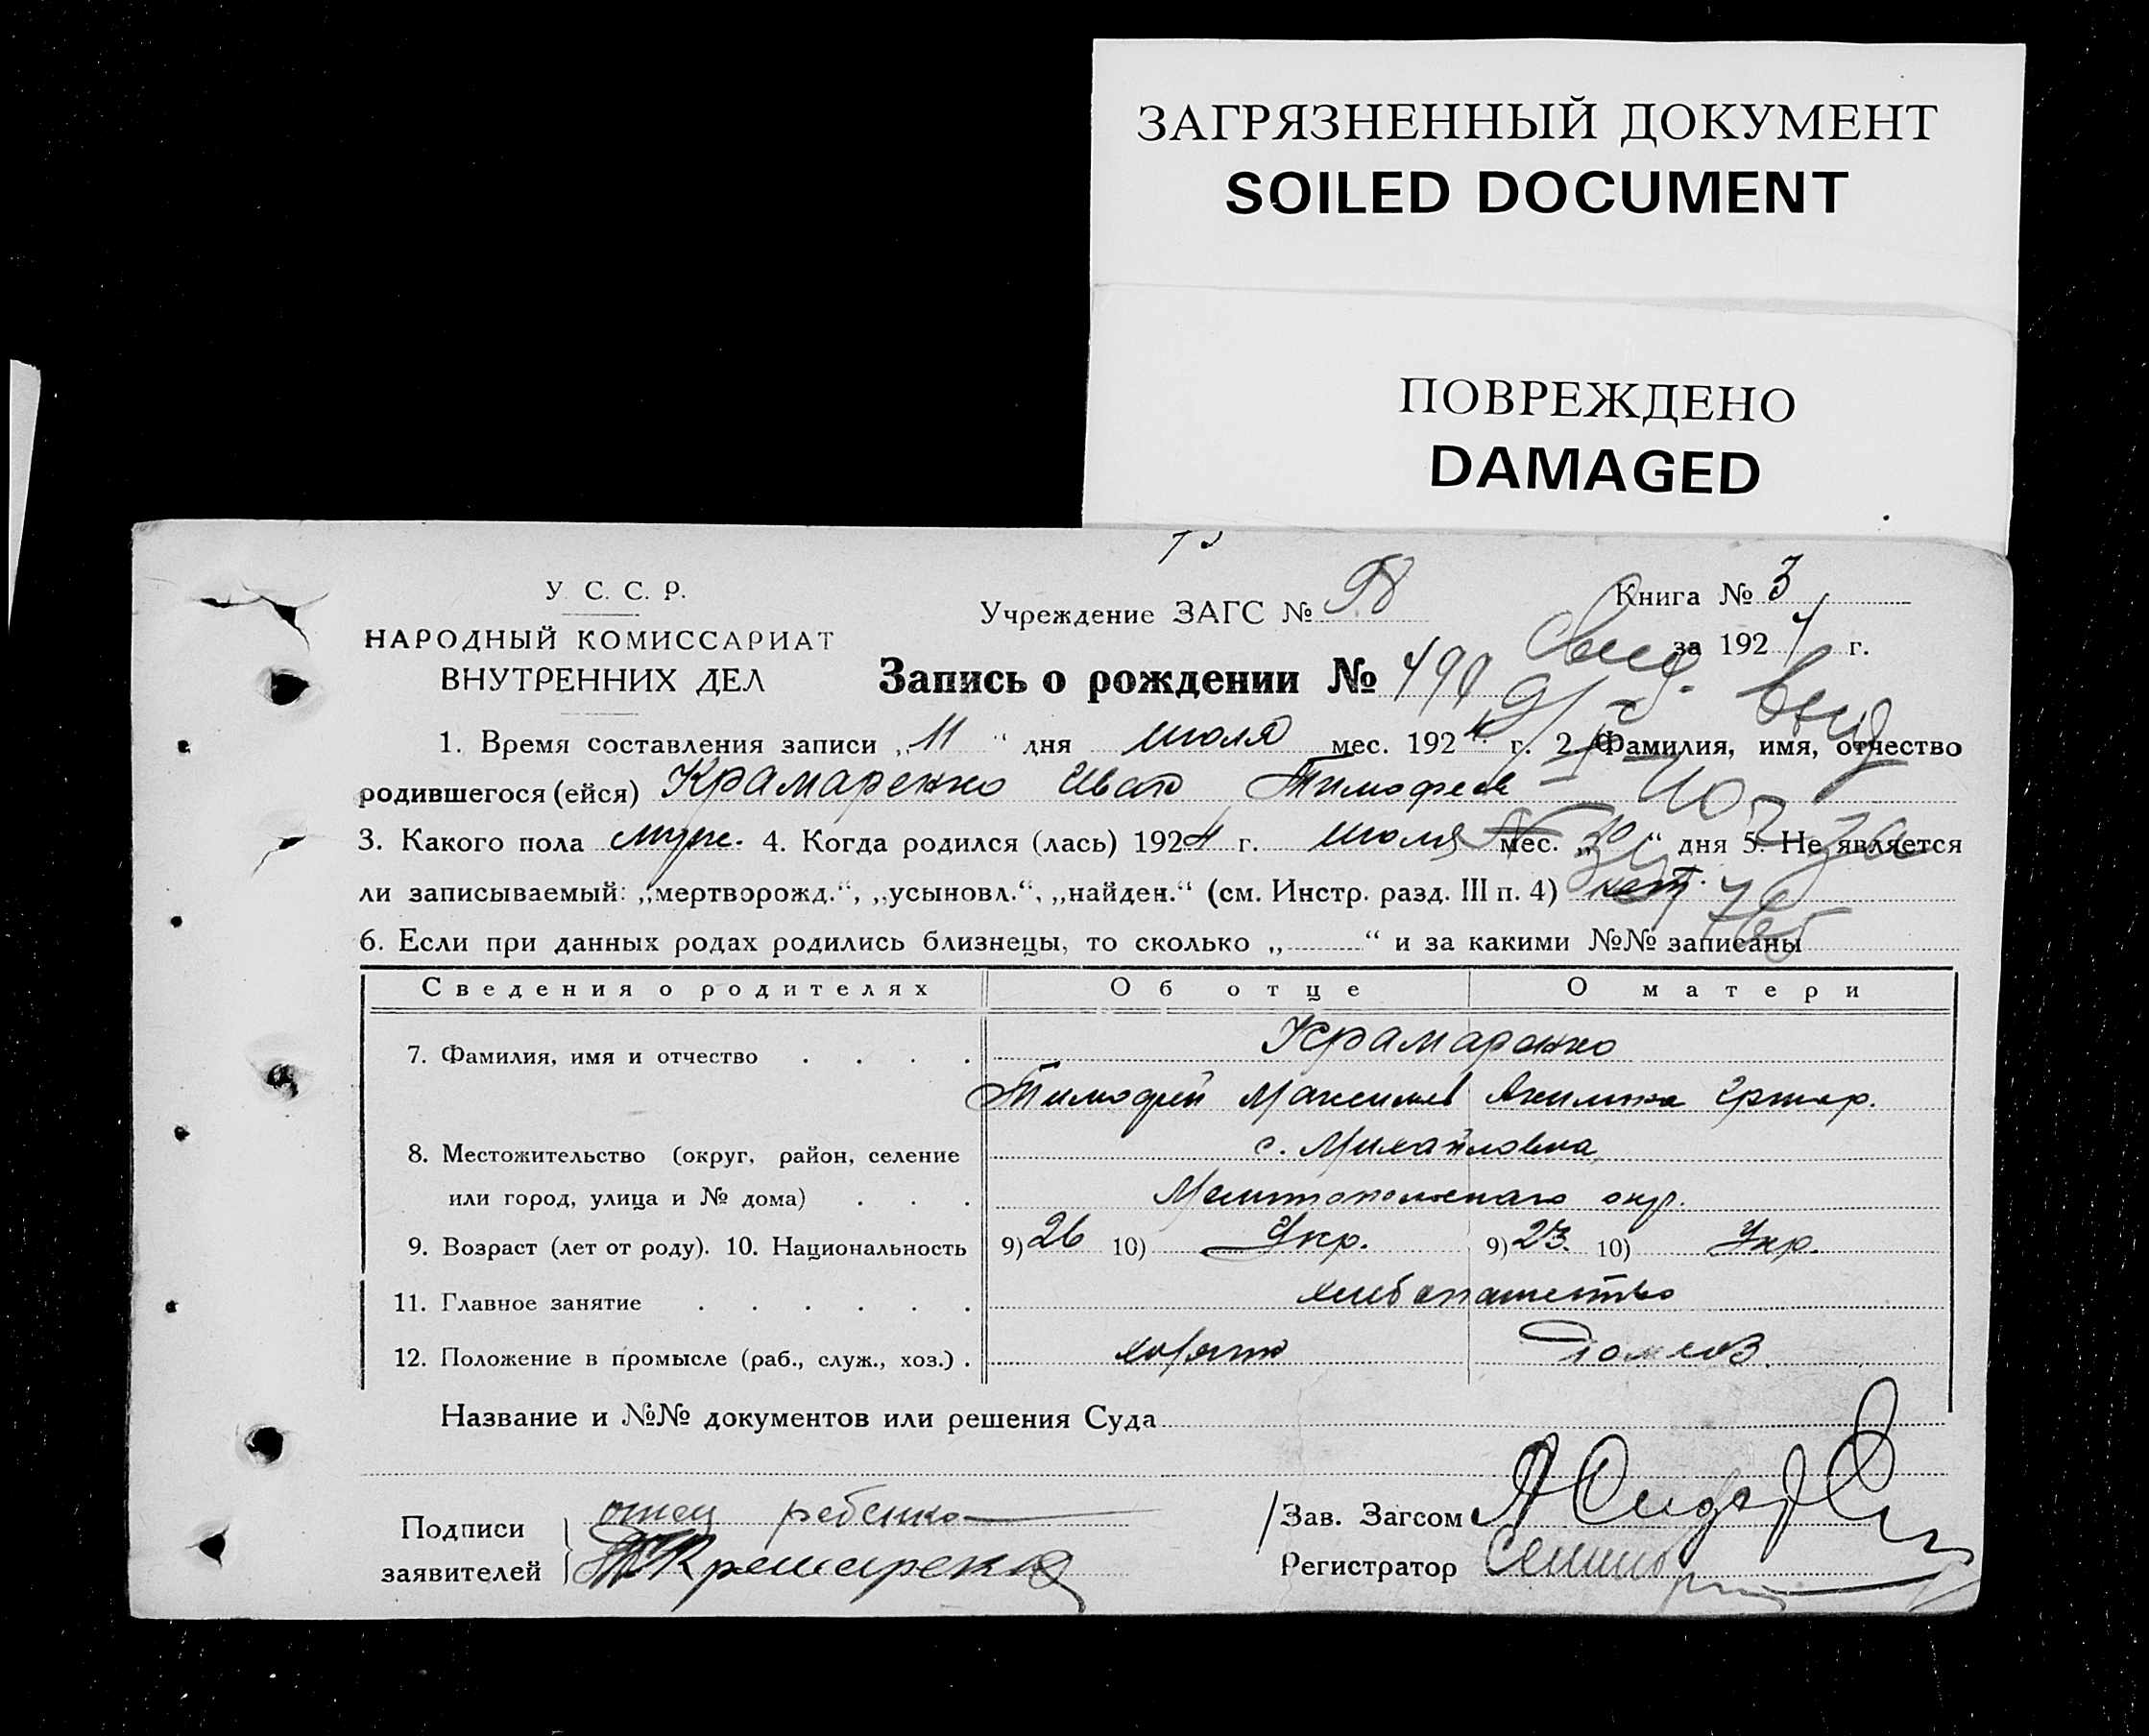 ЗАГРЯЗНЕННЫЙ ДОКУМЕНТ
SOILED DOCUMENT
ПОВРЕЖДЕНО
DAMAGED
У. С. С. Р.
НАРОДНЫЙ КОМИССАРИАТ
ВНУТРЕННИХ ДЕЛ
Учреждение ЗАГС №
Книга № 3
за 1924 г.
Запись о рождении № 490
Свид. выд
1. Время составления записи „11“ дня июля мес. 1924 г. 2. Фамилия, имя, отчество
родившегося (ейся) Крамаренко Иван Тимофеев
3. Какого пола муж. 4. Когда родился (лась) 1924 г. июля мес. „ “ дня 5. Не является
ли записываемый: „мертворожд.“, „усыновл.“, „найден.“ (см. Инстр. разд. III п. 4) нет.
6. Если при данных родах родились близнецы, то сколько „ “ и за какими №№ записаны
Сведения о родителях Об отце О матери
7. Фамилия, имя и отчество . . . . Крамаренко
Тимофей Максимов Акилина Григор.
8. Местожительство (округ, район, селение с. Михайловка,
или город, улица и № дома) . . . Мелитопольскаго окр.
9. Возраст (лет от роду). 10. Национальность 9) 26 10) Укр. 9) 23. 10) Укр.
11. Главное занятие . . . . . . хлебопашество
12. Положение в промысле (раб., служ., хоз.) . хозяин
Название и №№ документов или решения Суда
Подписи заявителей
отец ребенка
Крамаренко
Зав. Загсом
Регистратор